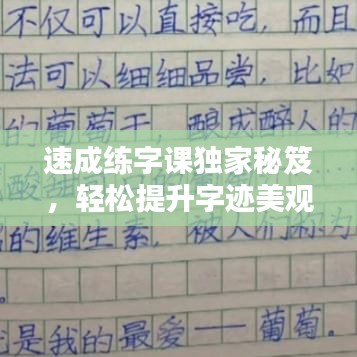 不仅可以直接吃，而且
法可以细细品尝，比如
的葡萄干，酿成醉人的
速成练字课独家秘笈
，轻松提升字迹美观
的维生素，被人们称为
是我的最爱——葡萄。